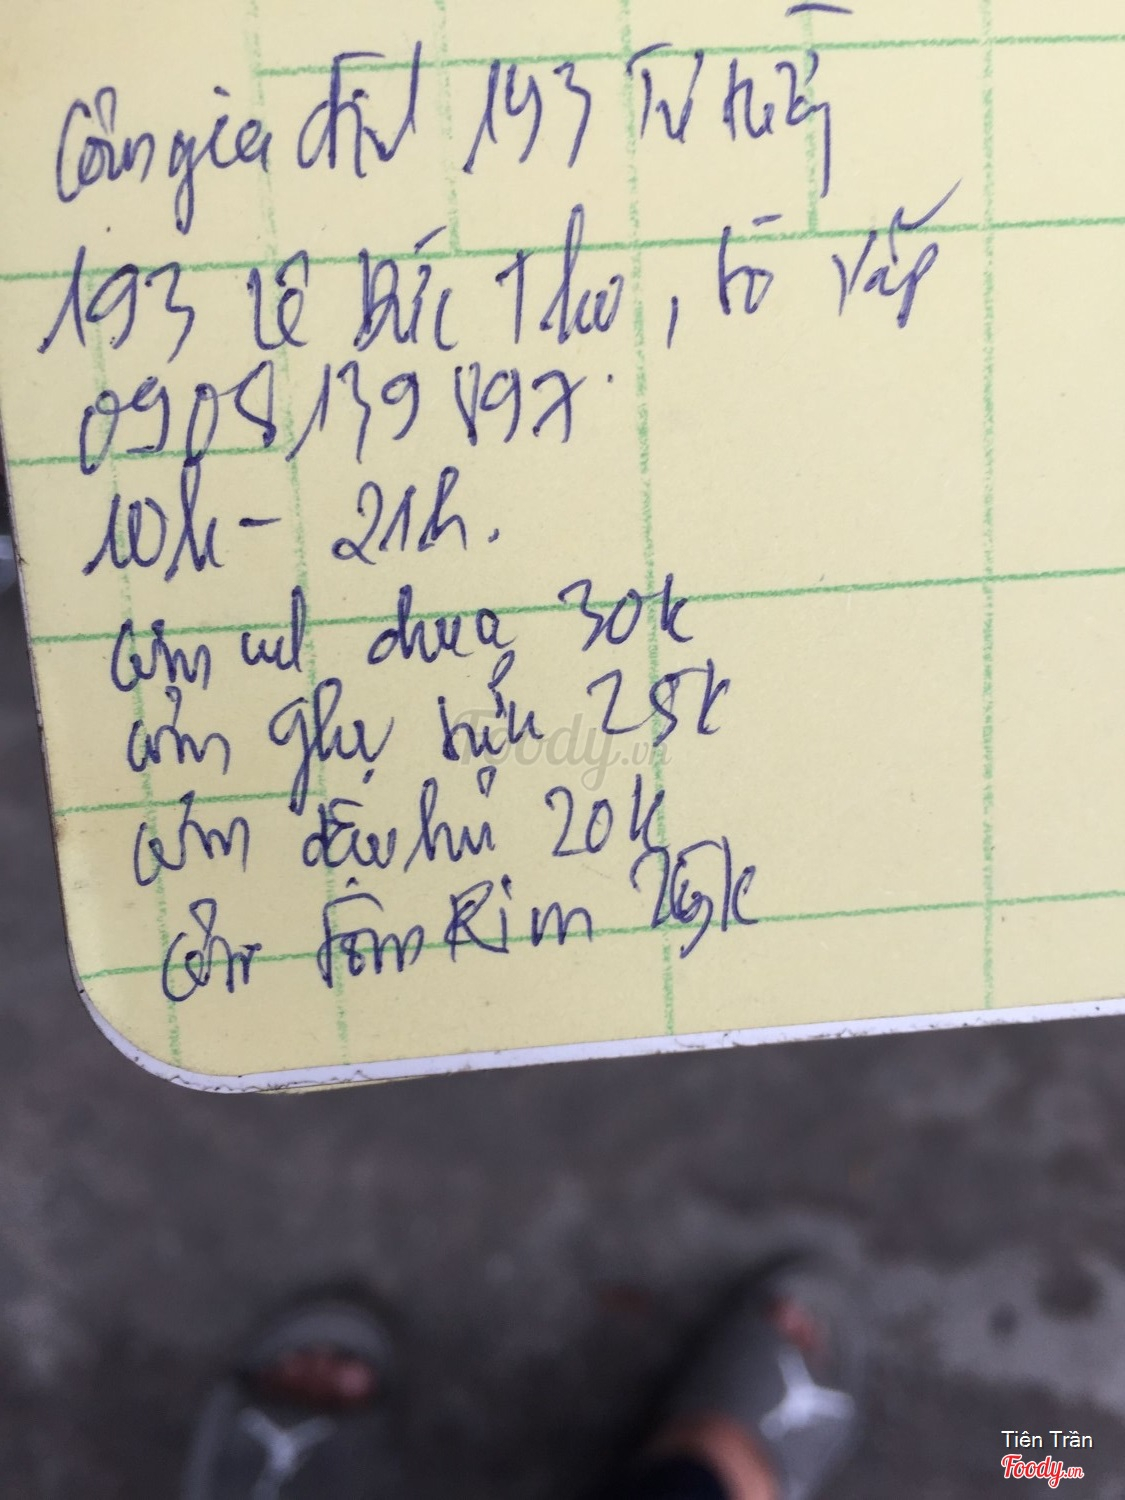 Cơm gia đình 193 Tứ
193 Lê Đức Thọ, Gò Vấp
0908139897.
10h - 21h.
cơm dưa 30k
cơm ghẹ 25k
cơm đậu hủ 20k
cơm tôm Rim 25k
Foody.vn
Tiên Trần
Foody.vn